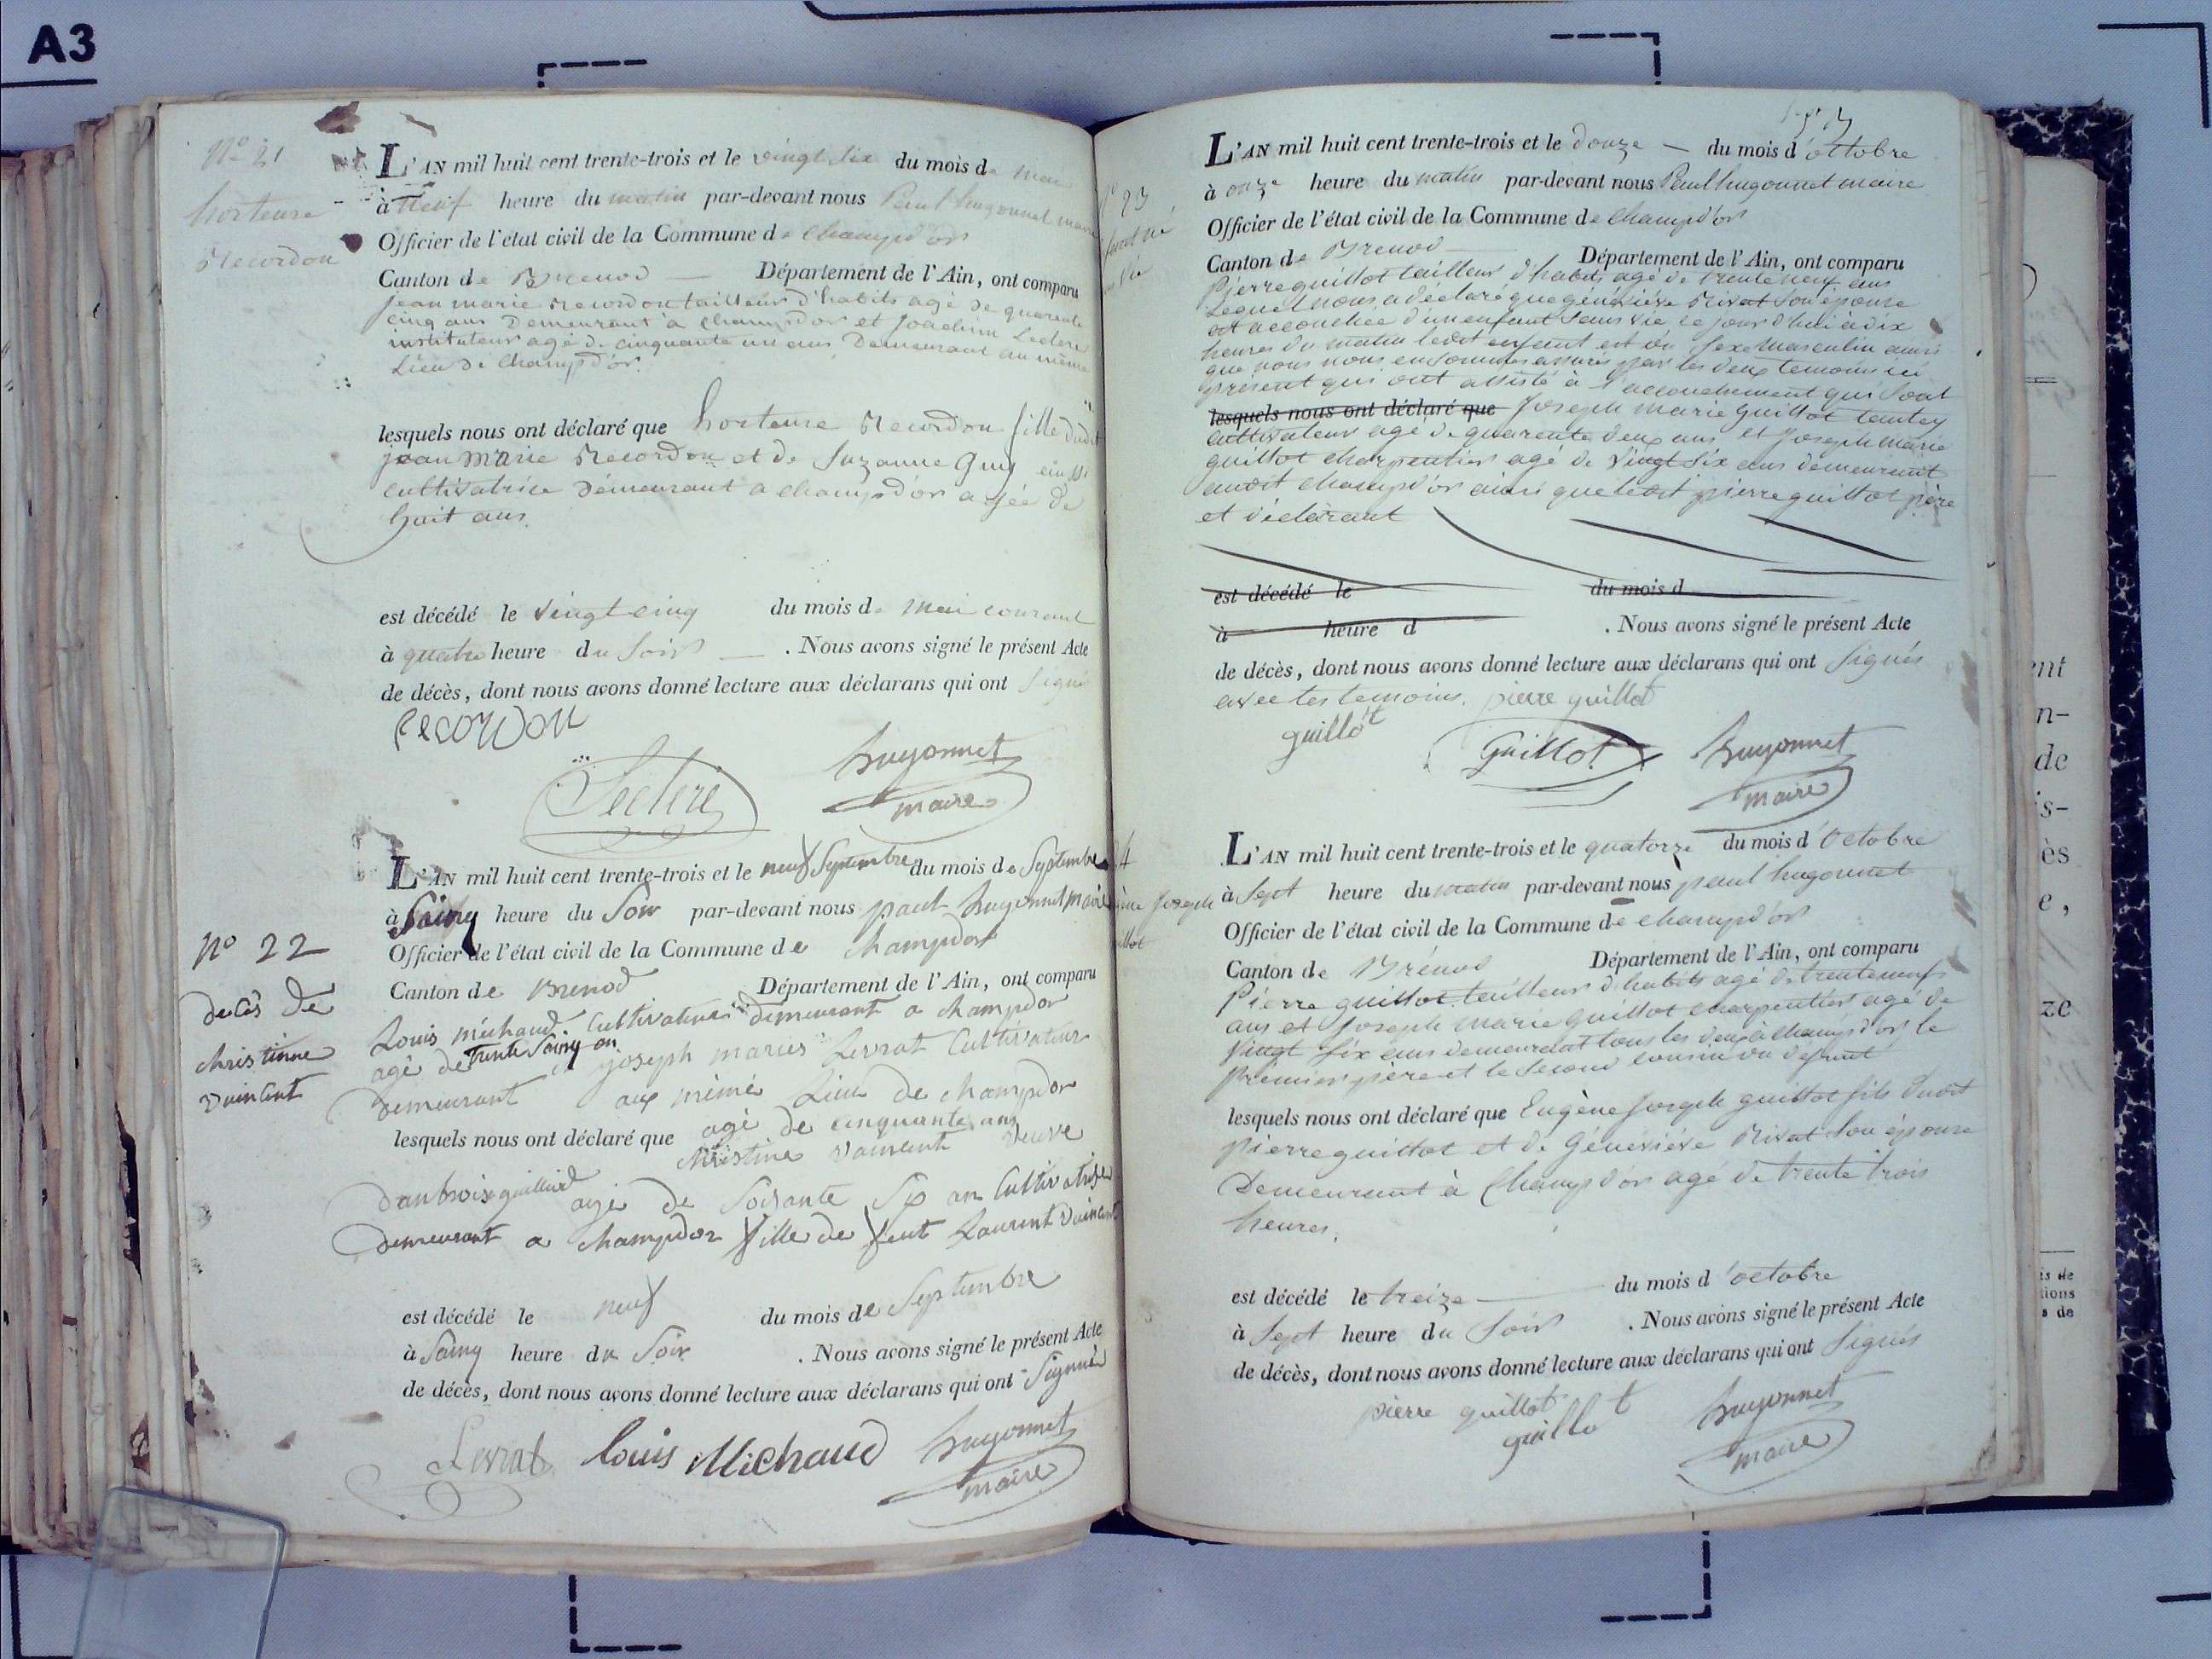 A3
N° 21
hortense
Recordon
L'AN mil huit cent trente-trois et le vingt six du mois de mai
à neuf heure du matin par-devant nous Paul hugonnet maire
Officier de l'état civil de la Commune de Champd'or
Canton de Brenod Département de l'Ain, ont comparu
jean marie Recordon tailleur d'habits agé de quarente
cinq ans Demeurant à champd'or et Joachim Leclerc
instituteur agé de cinquante un ans Demeurant au même
Lieu de Champd'or.
lesquels nous ont déclaré que hortense Recordon fille dudit
jean Marie Recordon et de Suzanne Guy
cultivatrice Demeurant a champd'or agée de
huit ans.
est décédé le vingt cinq du mois de mai courant
à quatre heure du Soir . Nous avons signé le présent Acte
de décès, dont nous avons donné lecture aux déclarans qui ont Signé
recordon
Leclerc
hugonnet
maire
N° 22
décès de
christinne
vuincent
L'AN mil huit cent trente-trois et le neuf Septembre du mois de Septembre
à Sainq heure du Soir par-devant nous paul hugonnet maire
Officier de l'état civil de la Commune de champdor
Canton de Brenod Département de l'Ain, ont comparu
Louis michaud Cultivateur demeurant a champdor
agé de trente Sainq an joseph maries Levrat Cultivateur
Demeurant aux mêmê Lieu de champdor
lesquels nous ont déclaré que agé de cinquante ans
christine vuincent veuve
agé de Soisante Six an Cultivatrise
demeurant a champdor fille de feut Laurent vuincent
est décédé le neuf du mois de Septembre
à Sainq heure du Soir . Nous avons signé le présent Acte
de décès, dont nous avons donné lecture aux déclarans qui ont Signué
Levrat louis Michaud hugonnet
maire
N° 23
L'AN mil huit cent trente-trois et le douze du mois d'octobre
à onze heure du matin par-devant nous Paul hugonnet maire
Officier de l'état civil de la Commune de Champd'or
Canton de Brenod Département de l'Ain, ont comparu
Pierre guillot tailleur d'habits agé de trente neuf ans
Lequel nous a déclaré que génévièVe Rivat Son épouse
est accouchée d'un enfant Sans vie ce jour d'hui à dix
heures du matin ledit enfant est du Sexe Masculin ainsi
que nous nous en Sommes assurés par les deux temoins ici
présent qui ont assisté à l'accouchement qui Sont
lesquels nous ont déclaré que Joseph Marie Guillot tantey
cultivateur agé de quarente deux ans et Joseph Marie
guillot charpentier agé de Vingt Six ans demeurant
audit champd'or ainsi que ledit pierre guillot père
et déclarant
est décédé le du mois d
à heure d . Nous avons signé le présent Acte
de décès, dont nous avons donné lecture aux déclarans qui ont Signés
avec les temoins. pierre guillot
guillot
Guillot
hugonnet
maire
L'AN mil huit cent trente-trois et le quatorze du mois d'Octobre
à Sept heure du matin par-devant nous paul hugonnet
Officier de l'état civil de la Commune de champd'or
Canton de Brénod Département de l'Ain, ont comparu
Pierre guillot tailleur d'habits agé de trente neuf
ans et Joseph Marie guillot charpentier agé de
Vingt Six ans demeurant tous les deux à champd'or le
Premier père et le Second cousin du defunt
lesquels nous ont déclaré que Eugène Joseph guillot fils dudit
pierre guillot et de GénévièVe Rivat Son épouse
Demeurant à Champd'or agé de trente trois
heures.
est décédé le treize du mois d'octobre
à Sept heure du Soir . Nous avons signé le présent Acte
de décès, dont nous avons donné lecture aux déclarans qui ont Signés
pierre guillot
guillot
hugonnet
maire